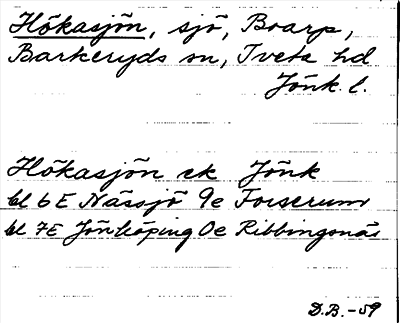 Hökasjön, sjö, Boarp,
Barkeryds sn, Tveta hd
Jönk. l.
Hökasjön ek Jönk
bl 6E Nässjö 9e Forserum
bl 7E Jönköping 0e Ribbingsnäs
D.B. -59